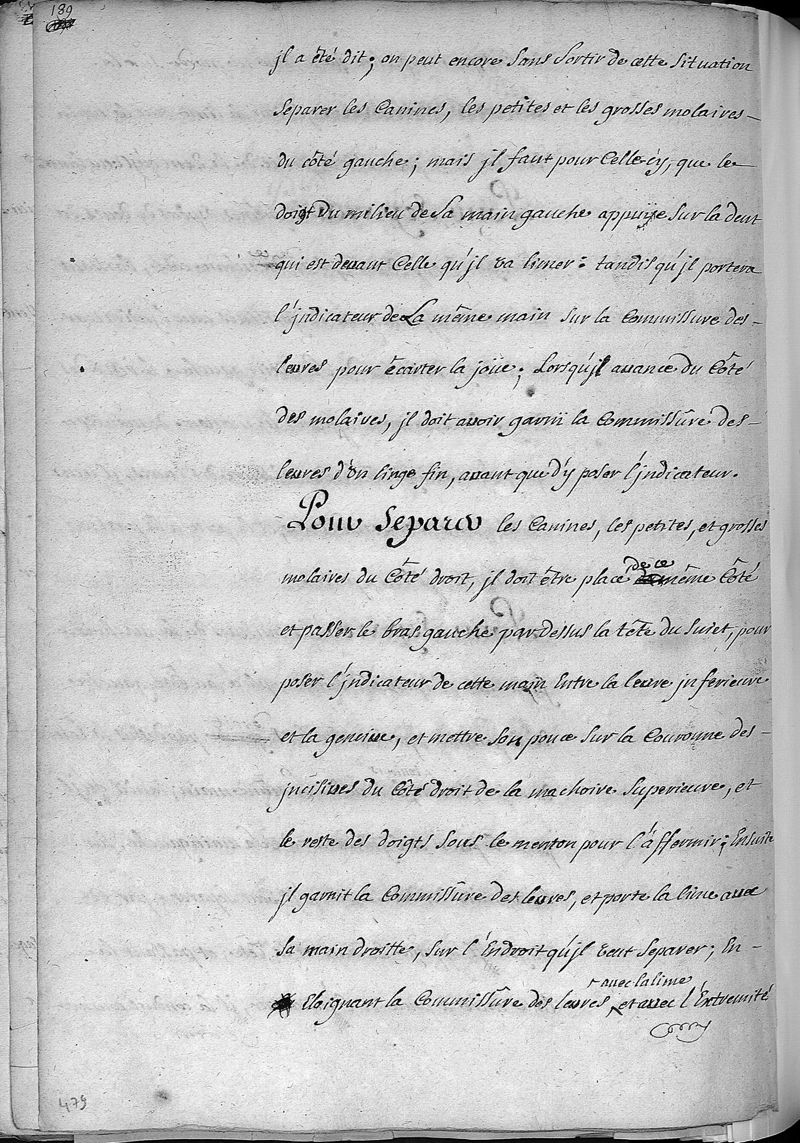 189
jl a été dit; on peut encore Sans Sortir de cette Situation
Separer les Canines, les petites et les grosses molaires-
du côté gauche; mais jl faut pour Celle cy, que le
doigt Du milieu de Sa main gauche appuÿe Sur la dent
qui est devant Celle qu'jl va limer: tandis qu'jl portera
l'jndicateur de La même main Sur la Commissure des-
levres pour écarter la joüe; Lorsqu'jl avance du Côté
des molaires, jl doit avoir garni la Commissûre des-
levres d'un linge fin, avant que d'y poser l'jndicateur.
Pour Separer les Canines, les petites, et grosses
molaires du Côté droit, jl doit être place de ce même Côté
et passer le bras gauche par dessus la tête du Sujet, pour
poser l'jndicateur de cette main Entre la levre jnferieure
et la gencive, et mettre Son pouce Sur la Couronne des-
jncisives du Côté droit de la machoire Superieure, et
le reste des doigts Sous le menton pour l'affermir; Ensuite
jl garnit la Commissûre des levres, et porte la lime avec
Sa main droitte, Sur l'Endroit qu'jl veut Separer; En-
Eloignant la Commissûre des levres avec la lime, et avec l'Extremité
479